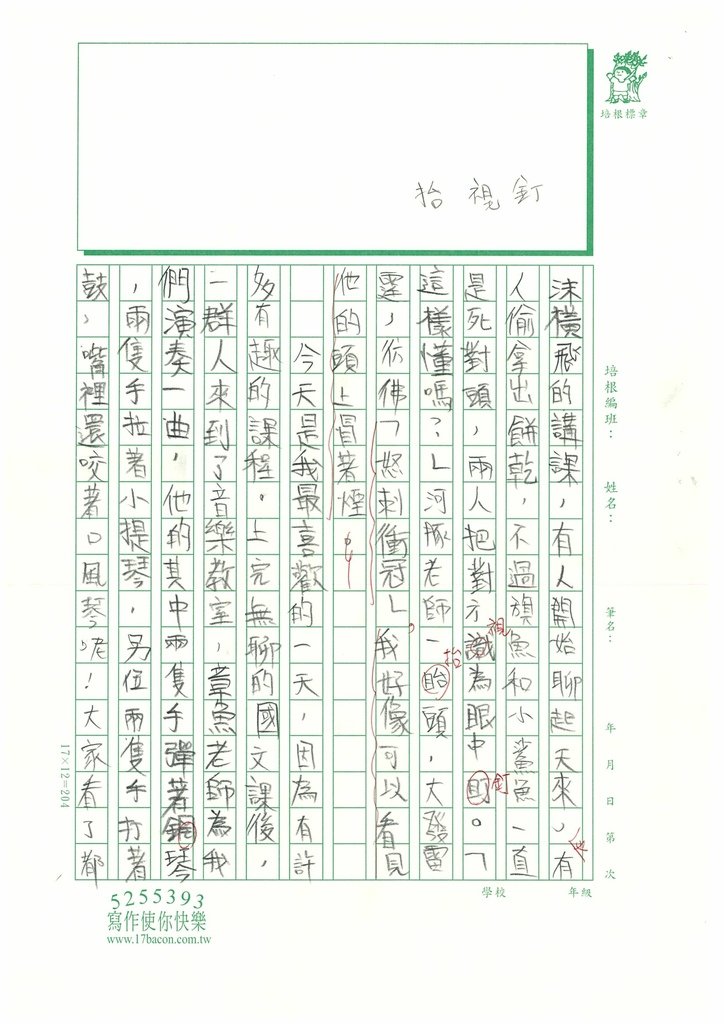 培根標章
抬 視 釘
培根編班： 姓名： 筆名： 年 月 日 第 次
沫橫飛的講課，有人開始聊起天來，也有
人偷拿出餅乾，不過旗魚和小鯊魚一直
是死對頭，兩人把對方識為眼中盯。「
視
釘
這樣懂嗎？」河豚老師一眙頭，大發雷
抬
霆，彷佛「怒刺衝冠」，我好像可以看見
他的頭上冒著煙。
今天是我最喜歡的一天，因為有許
多有趣的課程。上完無聊的國文課後，
一群人來到了音樂教室，章魚老師為我
們演奏一曲，他的其中兩隻手彈著鋼琴
，兩隻手拉著小提琴，另位兩隻手打著
鼓，嘴裡還咬著口風琴呢！大家看了都
17×12=204
學校 年級
5255393
寫作使你快樂
www.17bacon.com.tw